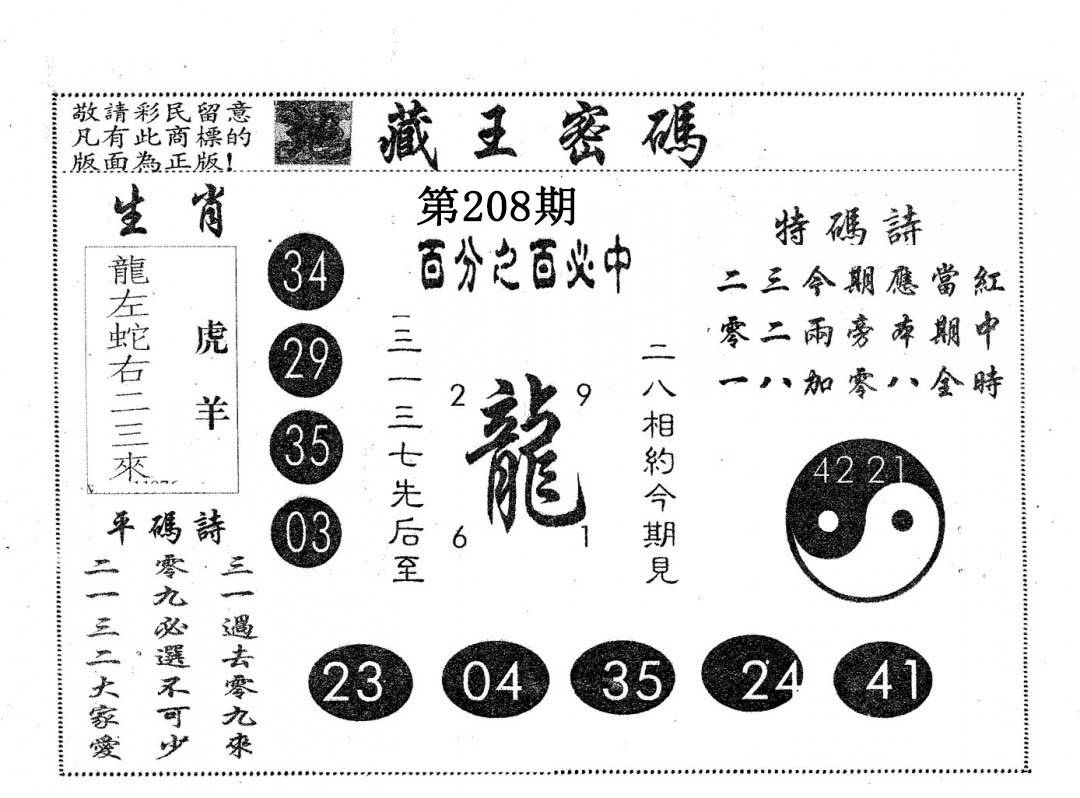 敬請彩民留意
凡有此商標的
版面為正版!
地藏王密碼
第208期
百分之百必中
生肖
龍左蛇右二三來
虎羊
34
29
35
03
三一三七先后至
2 9
龍
6 1
二八相約今期見
特碼詩
二三今期應當紅
零二兩旁本期中
一八加零八全時
42 21
平碼詩
三一過去零九來
零九必選不可少
二一三二大家愛
23 04 35 24 41